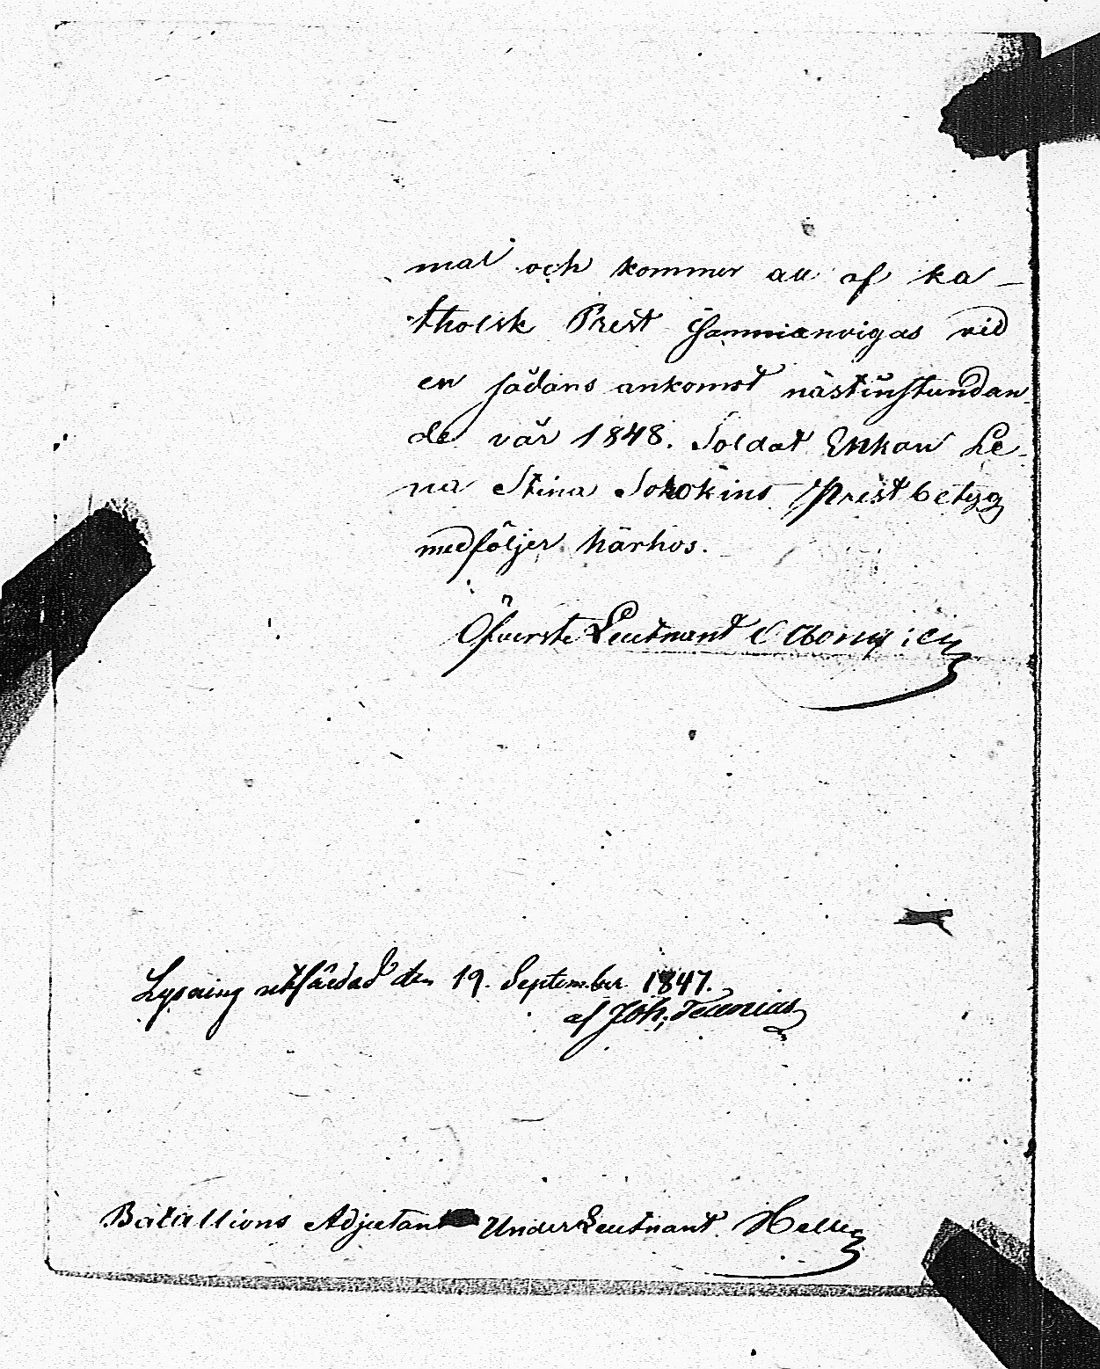 mal och kommer att af ka-
tholsk Prest sammanvigas vid
en sådans ankomst nästinstundan-
de vår 1848. Soldat Enkan Le-
na Stina Sorokins Prestbetyg
medföljer härhos.
Öfverste Leutnant
Lysning utfärdad den 19. September 1847.
af Joh;
Batallions Adjutant UnderLeutnant